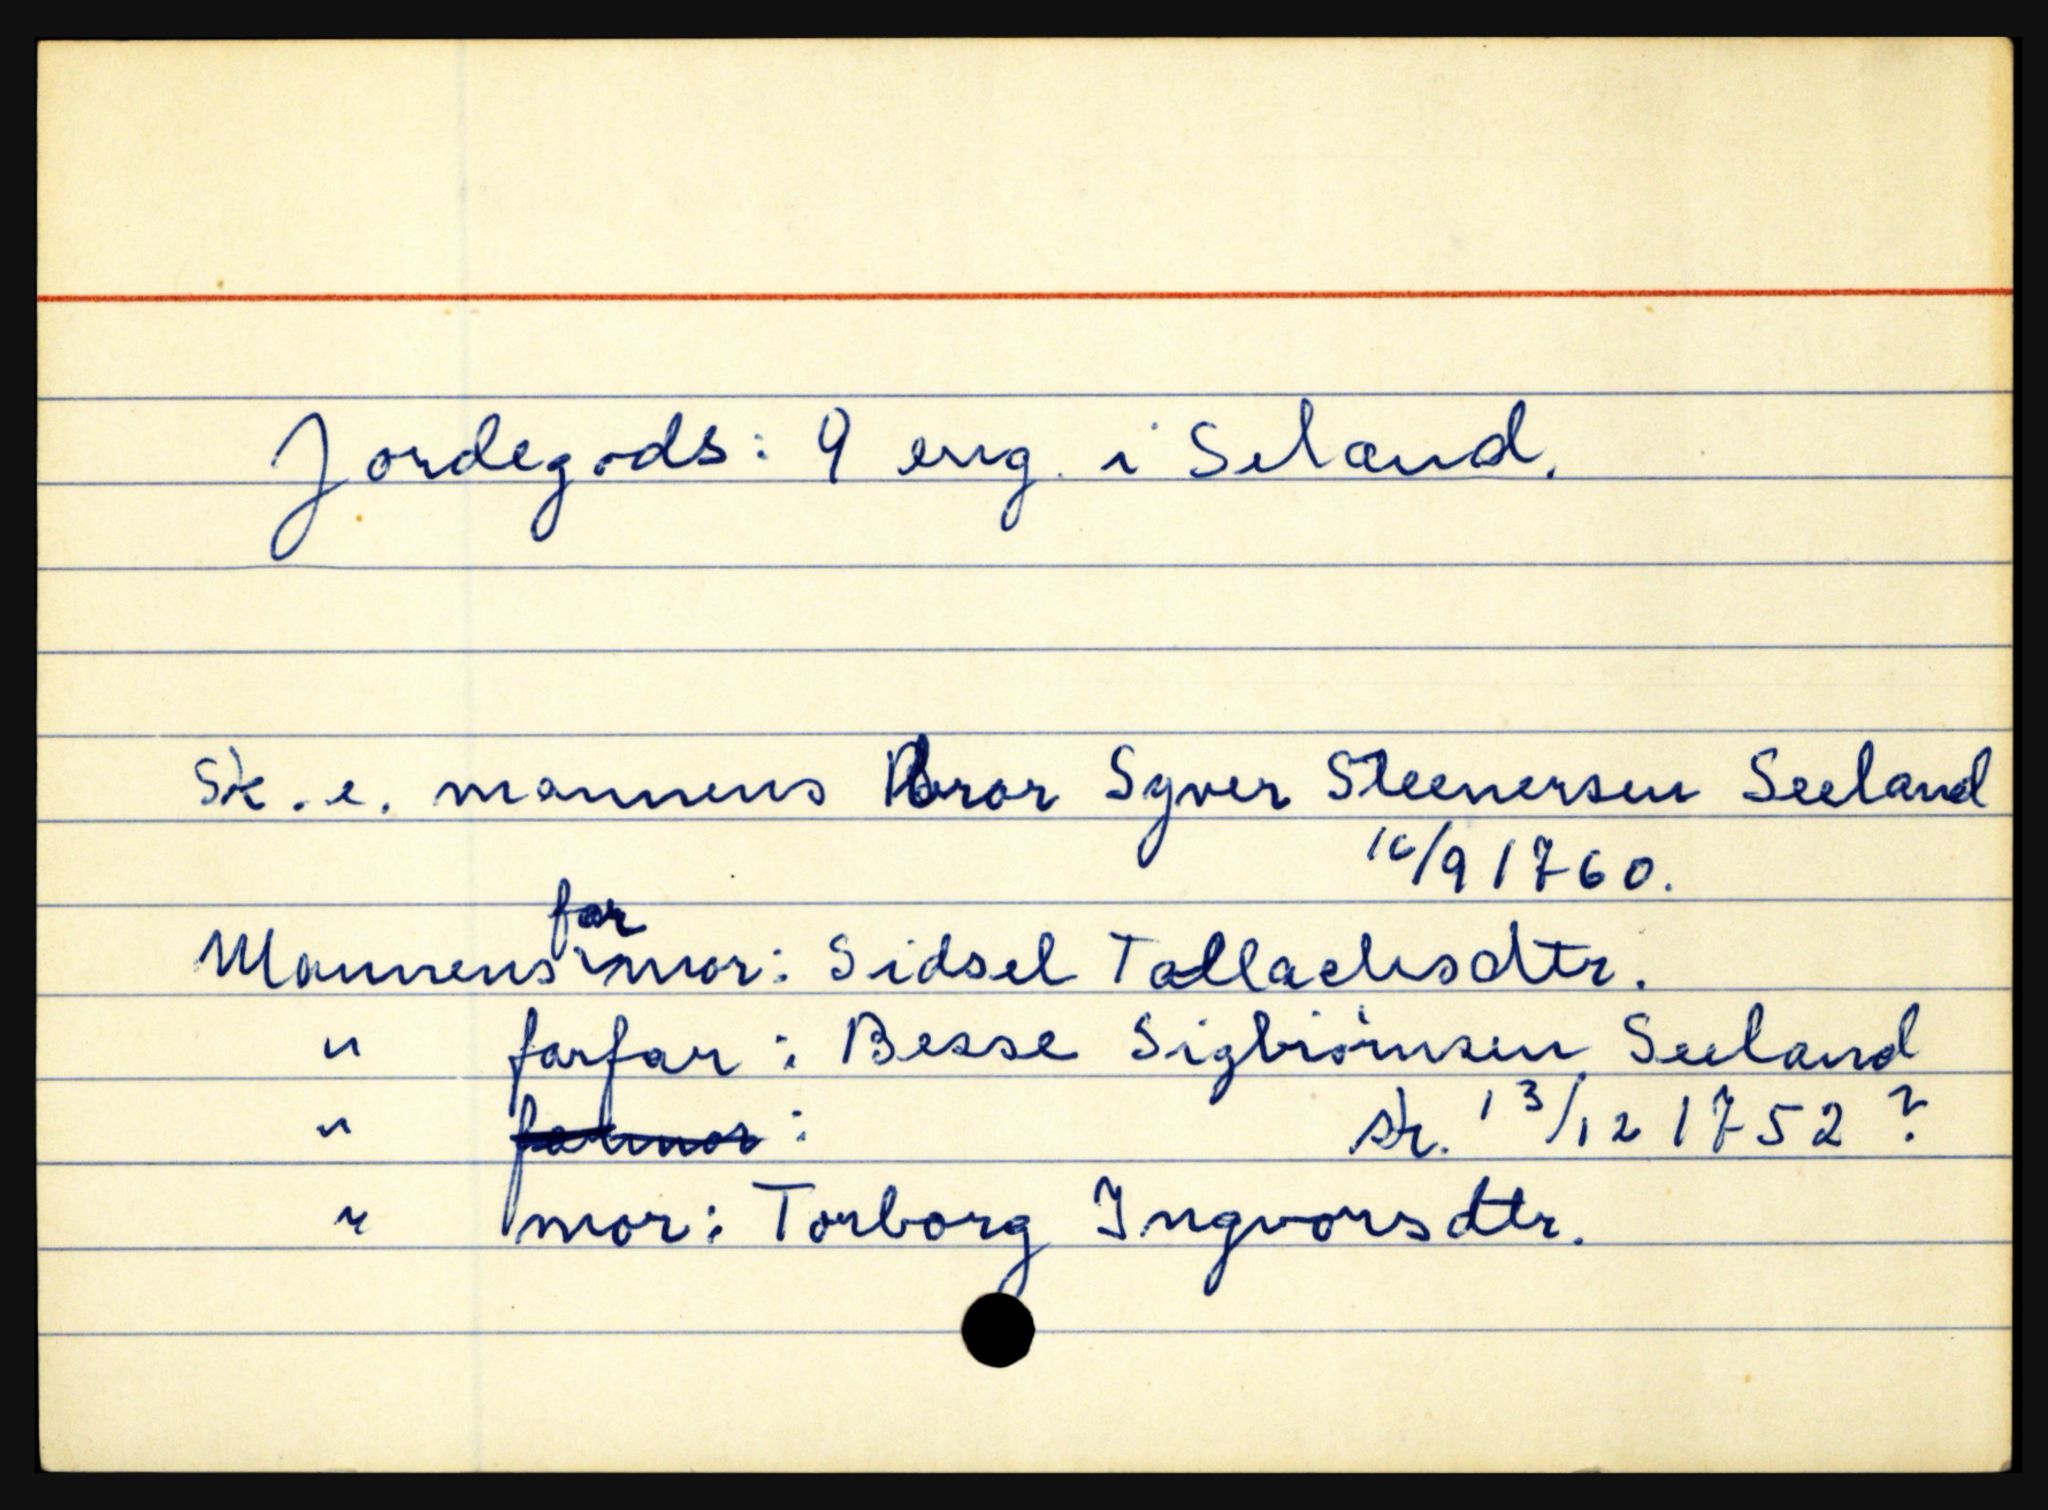 Jordegods: 9 eng. i Seland.
Sk. e. mannens Bror Syver Steenersen Seeland
16/9 1760.
Mannens farmor: Sidsel Tallachsdtr.
" farfar: Besse Sigbiørnsen Seeland
" farmor: sk. 13/12 1752?
" mor: Torborg Ingvorsdtr.